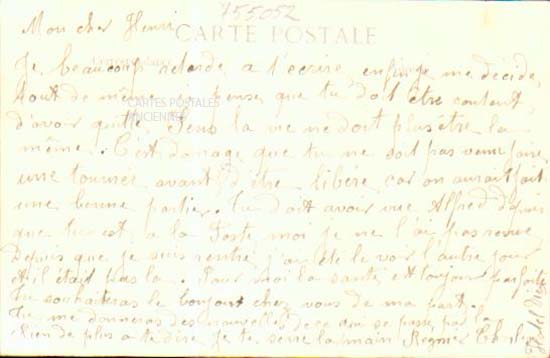 755052
Mon cher Henri
CARTE POSTALE
Je beaucoup retardé a t'ecrire, enfin je me décide
tout de même je pense que tu doit être content
CARTES POSTALES
ANCIENNES
d'avoir quitté Sens la vie ne doit plus être la
même. C'est domage que tu ne soit pas venu faire
une tournée avant d'être libéré car on aurait fait
une bonne partie. Tu doit avoir vue Alfred depuis
que tu est a la Poste, moi je ne l'ai pas revue
Depuis que je suis rentré j'ai été le voir l'autre jour
il était pas la. Pour moi la santé est toujour parfaite
Tu souhaiteras le bonjour chez vous de ma part.
Tu me donneras des nouvelles de ce qui se passe par la
Rien de plus a te dire je te serre la main Regnier